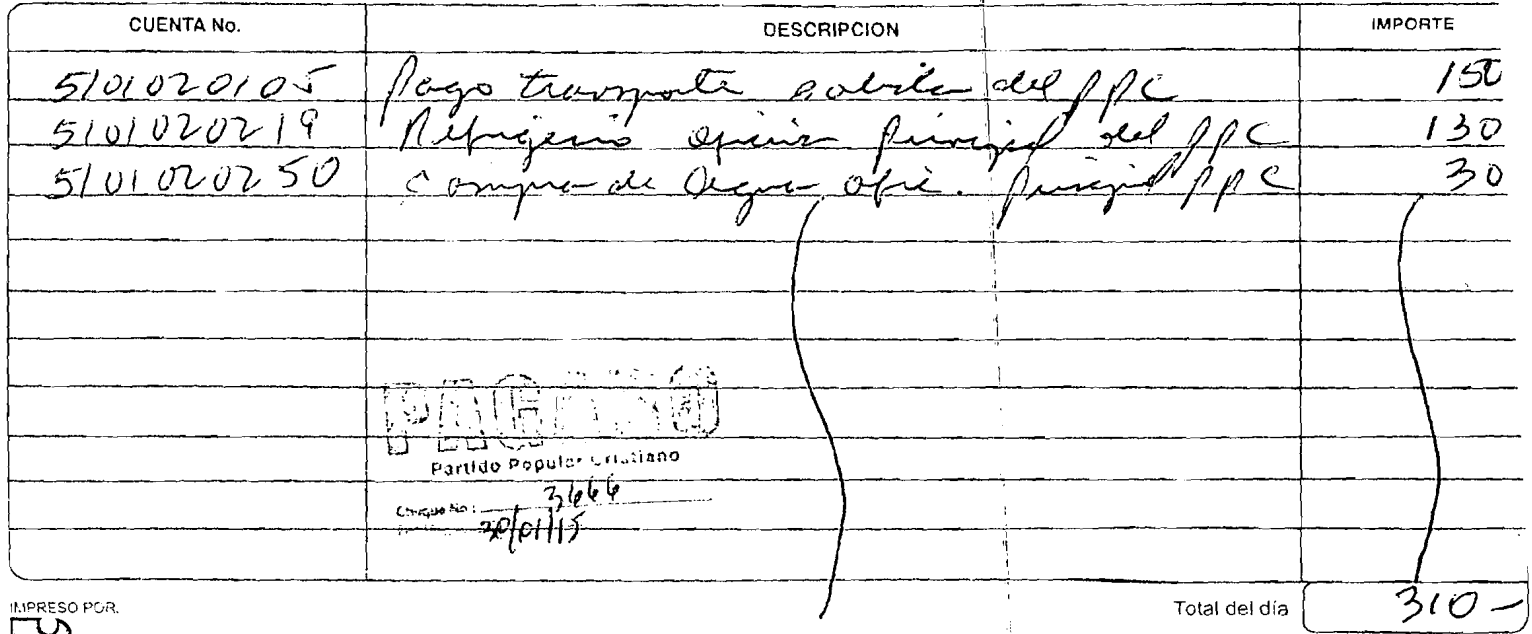 CUENTA No. DESCRIPCION IMPORTE
5101020105 Pago transporte del PPC 150
5101020219 Refrigerio oficina principal del PPC 130
5101020250 Compra de Agua ofic. principal PPC 30
PAGADO
Partido Popular Cristiano
Cheque No: 3666
30/01/15
IMPRESO POR.
Total del día 310-